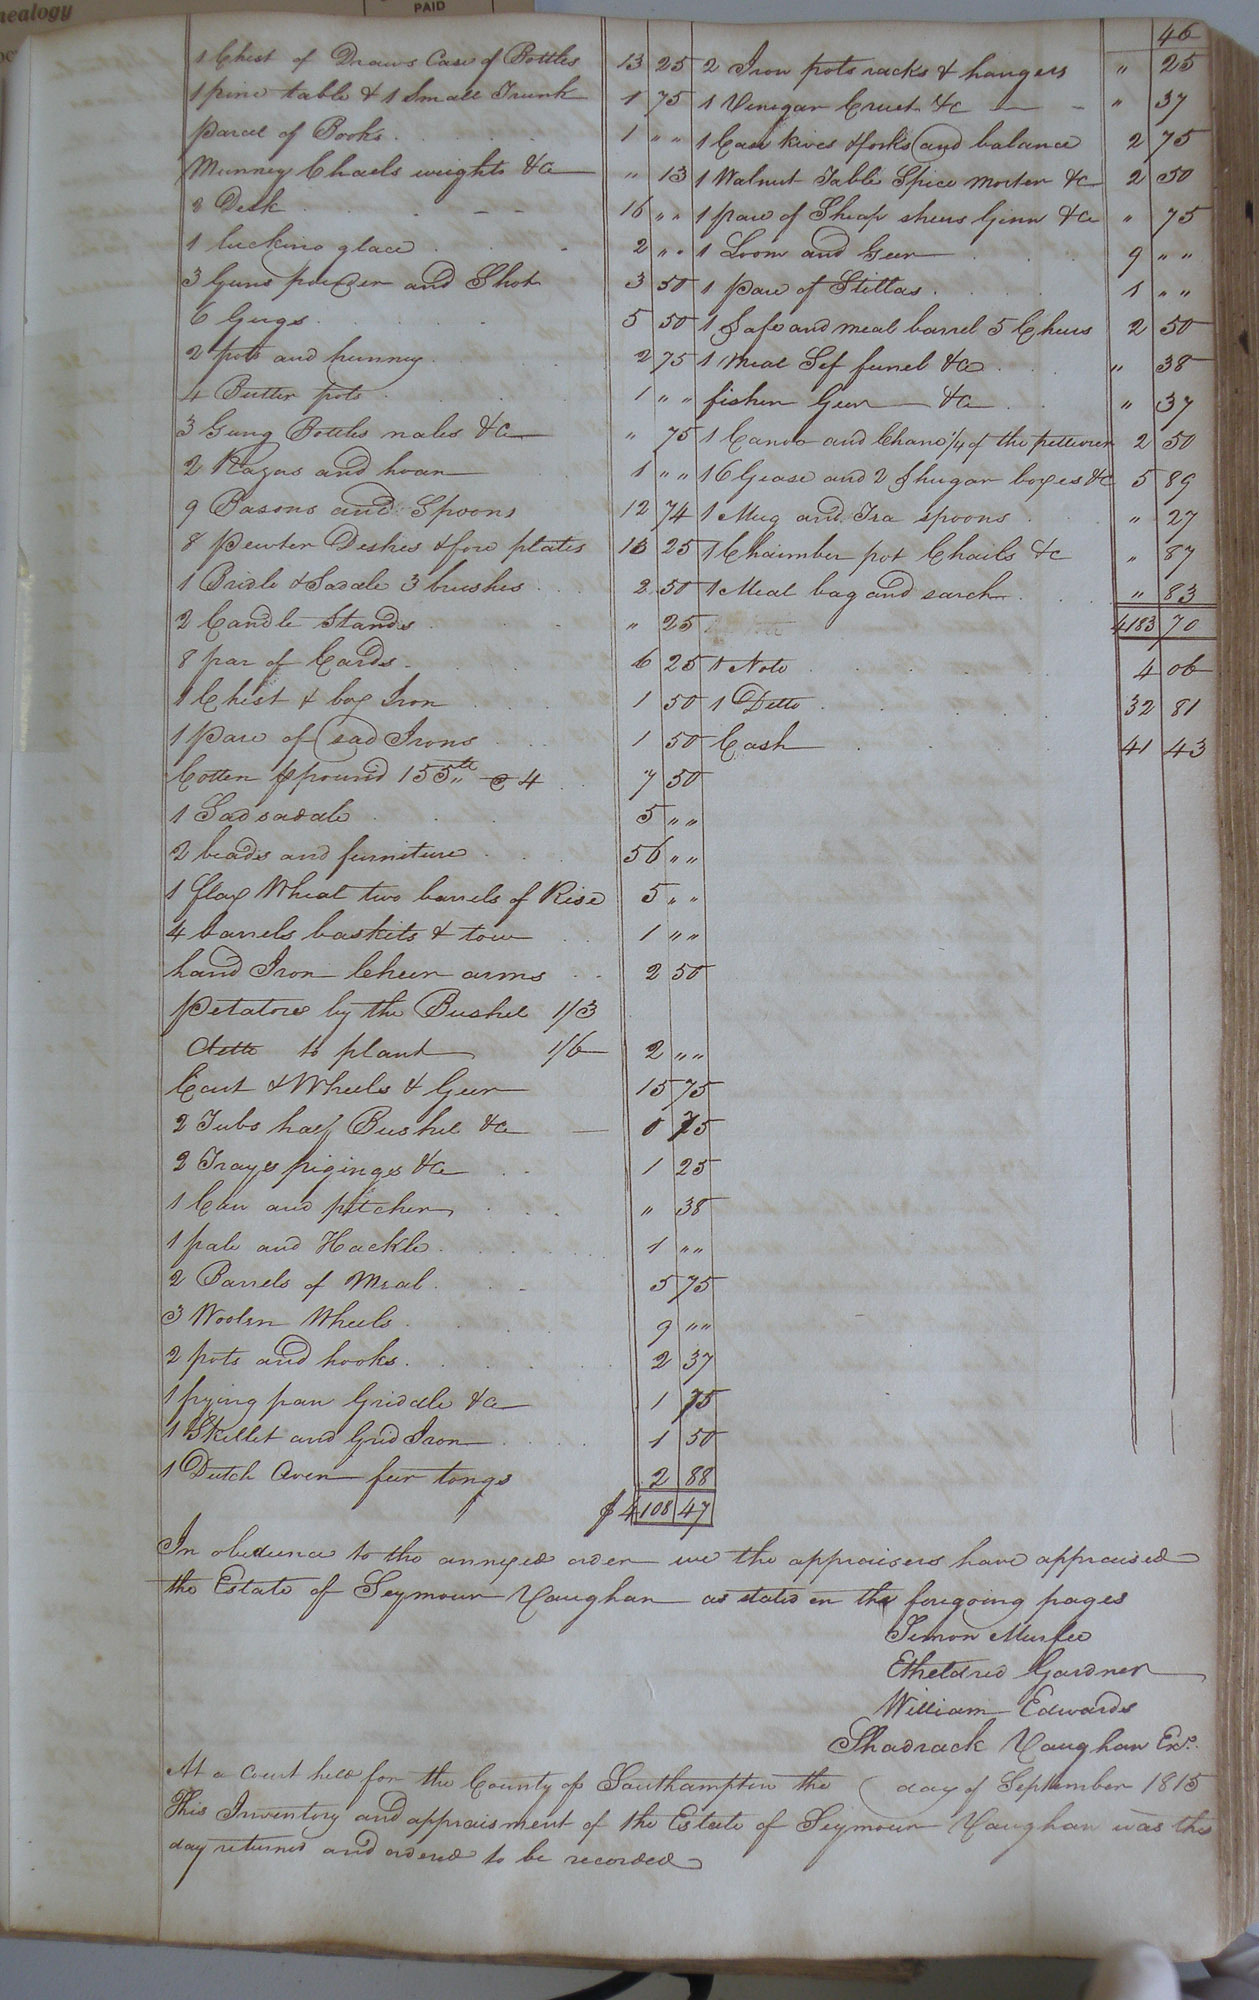 nealogy
PAID
46
1 Chest of Draws Case of Bottles 13 25
1 pine table & 1 Small Trunk 1 75
Parcel of Books 1 " "
Munney Chaels weights &c " 13
2 Desk 16 " "
1 lucking glace 2 " "
3 Guns powder and Shot 3 50
6 Gugs 5 50
2 pots and hunney 2 75
4 Butter pots 1 " "
3 Gung Bottles nales &c " 75
2 Razos and hoan 1 " "
9 Basons and Spoons 12 74
8 Pewter Deshes & fore plates 13 25
1 Bridle & Sadale 3 brushes 2 50
2 Candle Stands " 25
8 par of Cards 6 25
1 Chest & box Iron 1 50
1 pare of sad Irons 1 50
Cotten pr pound 155 @ 4 7 50
1 Sad sadale 5 " "
2 beads and furniture 56 " "
1 flax Wheat two barrels of Rise 5 " "
4 barrels baskits & tow 1 " "
hand Iron Cheer arms 2 50
Petatoes by the Bushel 1/3
ditto to plant 1/6 2 " "
Cart & Wheels & Geer 15 75
2 Tubs half Bushel &c 0 75
2 Trays piginges &c 1 25
1 Can and pitcher " 38
1 pale and Hackle 1 " "
2 Barrels of Meal 5 75
3 Woolen Wheels 9 " "
2 pots and hooks 2 37
1 frying pan Griddle &c 1 75
1 Skillet and Grid Iron 1 50
1 Dutch Oven fier tongs 2 88
$ 4108 47
2 Iron pots racks & hangers " 25
1 Vinegar Cruet &c " 37
1 Case kives & forks and balance 2 75
1 Walnut Table Spice morter &c 2 50
1 pare of Sheap shears Ginn &c " 75
1 Loom and Geer 9 " "
1 Pare of Stillas 1 " "
1 Safe and meal barrel 5 Cheers 2 50
1 Meal Sif funel &c " 38
fishen Geer &c " 37
1 Canoo and Chane 1/4 of the 2 50
16 Gease and 2 Shugar boxes &c 5 89
1 Mug and Tea spoons " 27
1 Chaimber pot Chails &c " 87
1 Meal bag and sarch " 83
4183 70
1 Note 4 06
1 Ditto 32 81
Cash 41 43
In obedience to the annexed order we the appraisers have appraised
the Estate of Seymour Vaughan as stated in the foregoing pages
Simon Murfee
Etheldred Gardner
William Edwards
Shadrack Vaughan Exr.
At a Court held for the County of Southampton the day of September 1815
This Inventory and appraisment of the Estate of Seymour Vaughan was this
day returned and ordered to be recorded